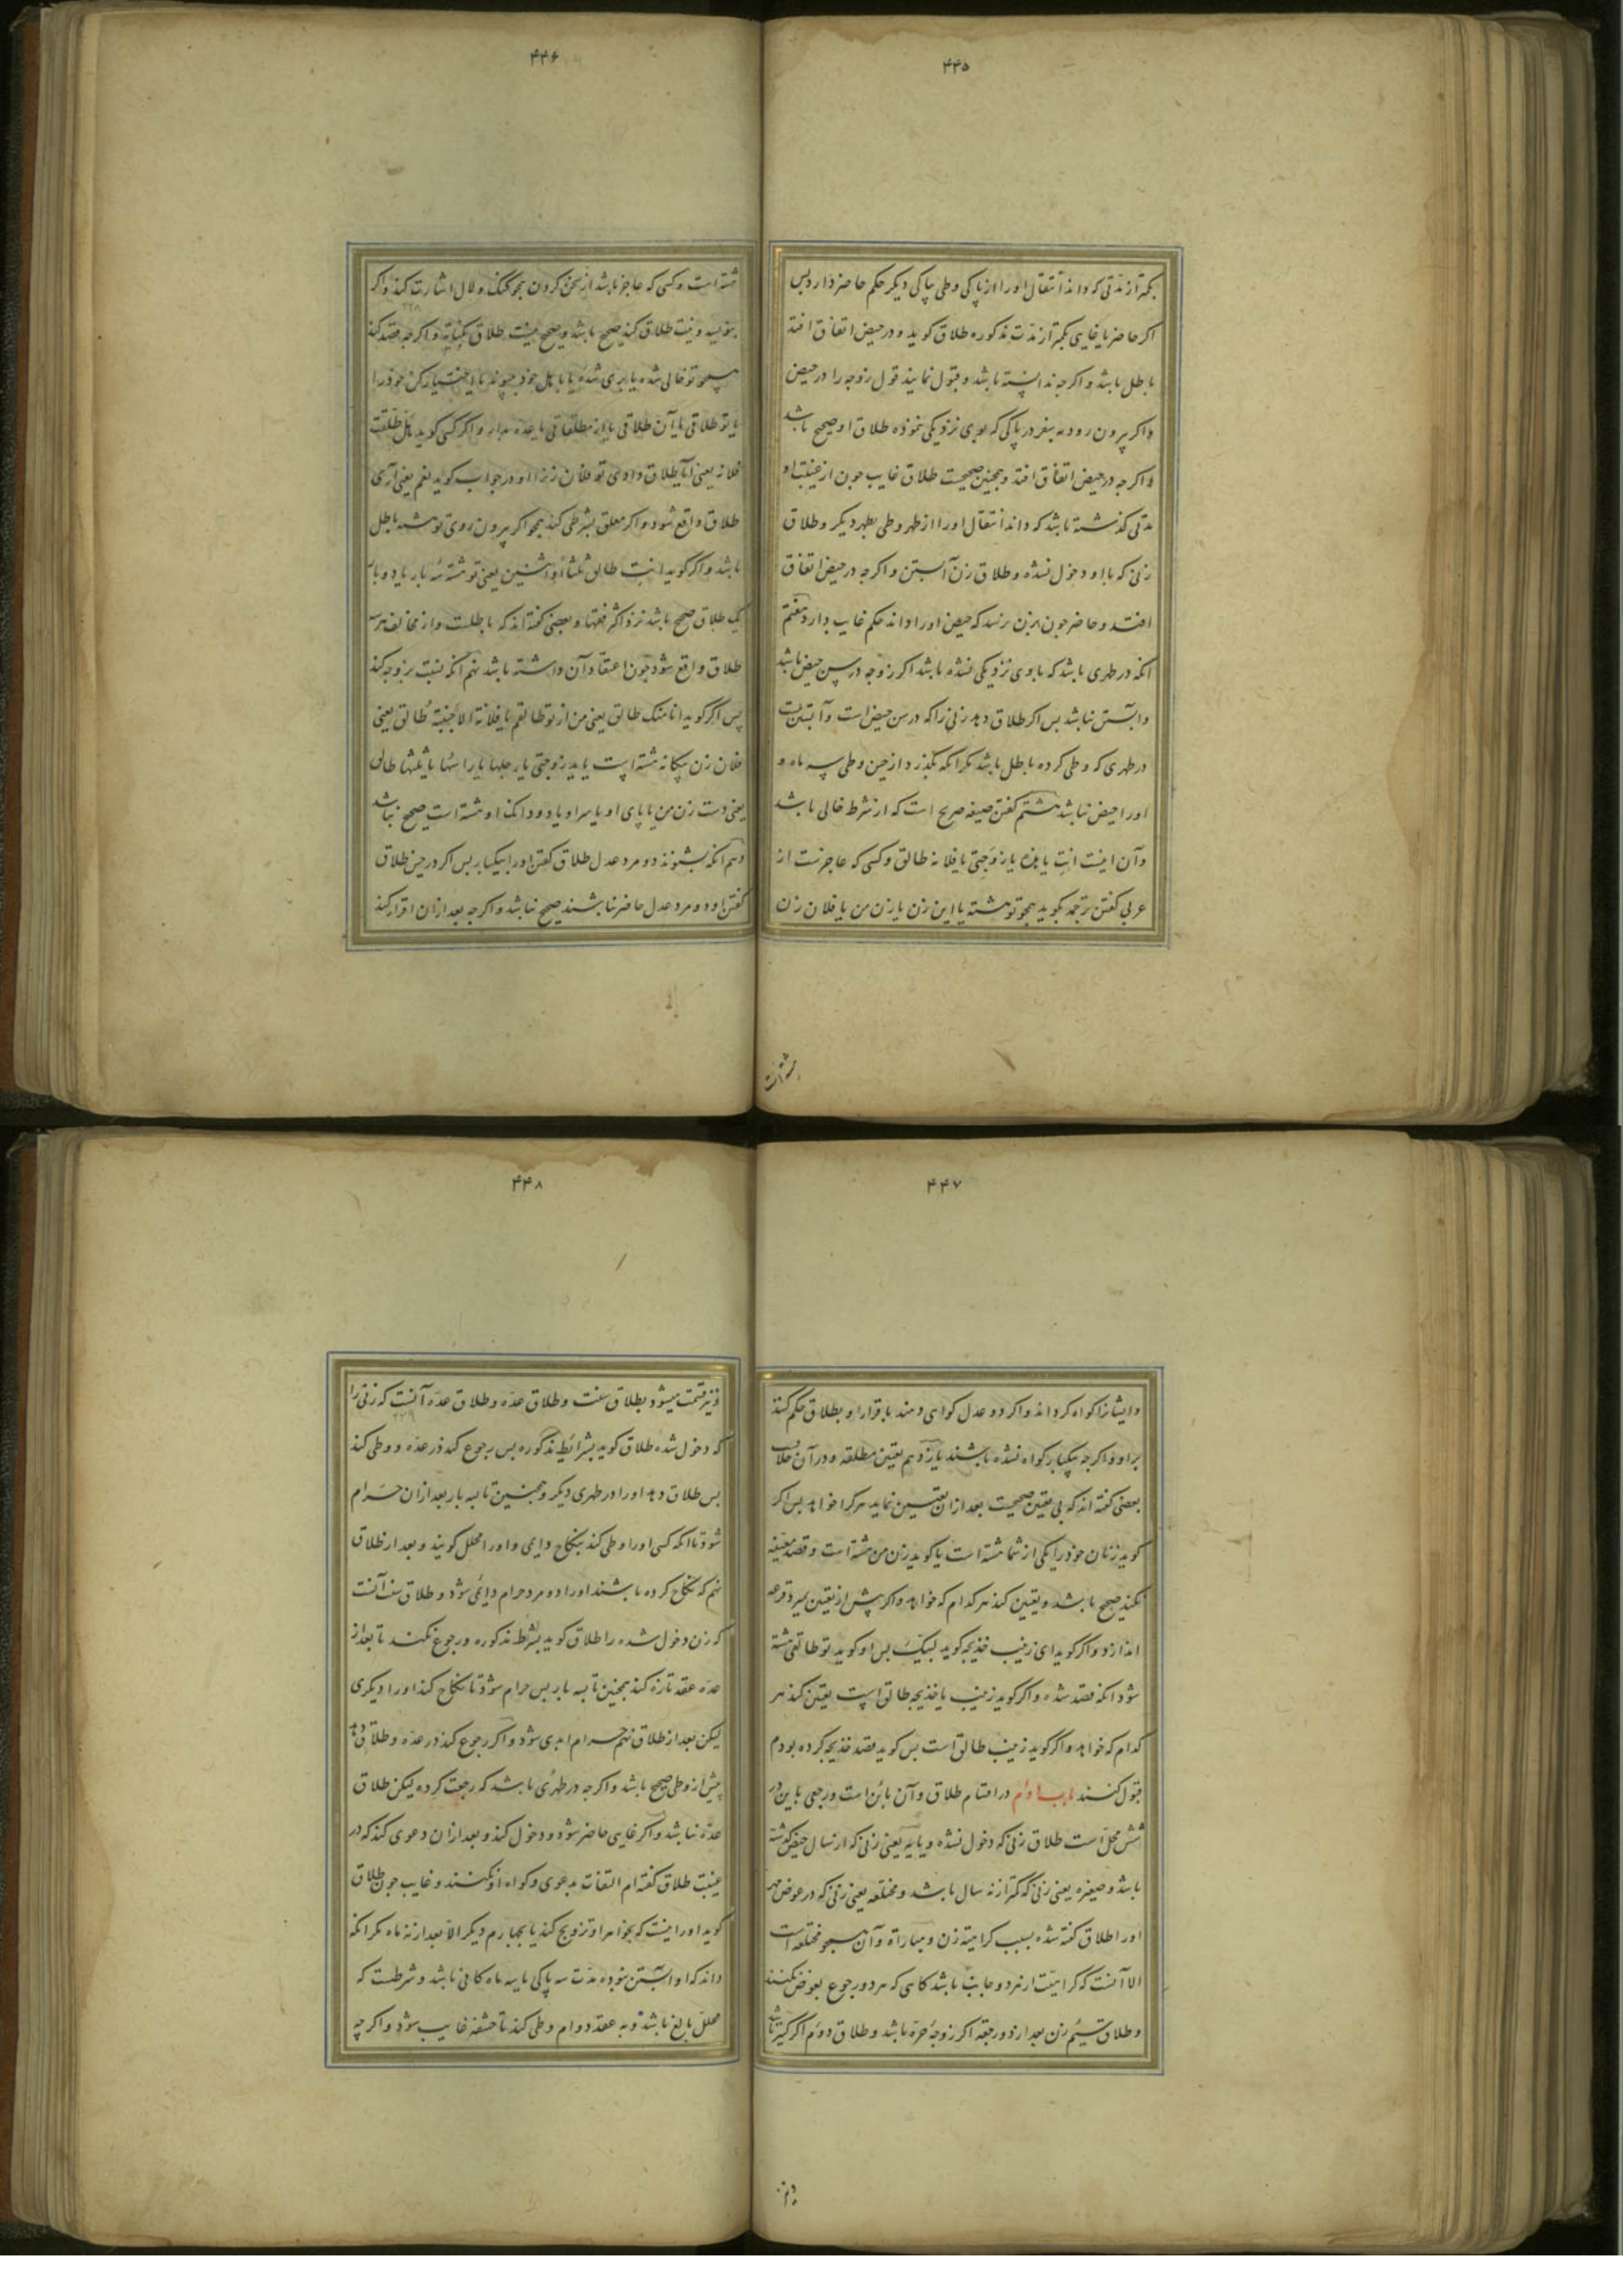 ۴۴۵
کمتر از مدتی که داند انتقال او را از پاکی وطی بپاکی دیکر حکم حاضر دارد پس
اکر حاضر یا غایبی کمتر از مدت مذکوره طلاق کوید و در حیض اتفاق افتد
باطل باشد و اکرجه ندانسته باشد و قبول نمایند قول زوجه را در حیض
و اکر بیرون رود بسفر در پاکی که بوی نزدیکی نموده طلاق او صحیح باشد
و اکرجه در حیض اتفاق افتد و همچنین صحیحست طلاق غایب جون از غیبت او
مدتی کذشته باشد که داند انتقال او را از طهر وطی بطهر دیکر و طلاق
زنی که با او دخول نشده و طلاق زن آبستن و اکرجه در حیض اتفاق
افتد و حاضر جون بزن نرسد که حیض او را داند حکم غایب دارد هفتم
انکه در طهری باشد که با وی نزدیکی نشده باشد اکر زوجه در سن حیض باشد
و آبستن نباشد بس اکر طلاق دهد زنی را که در سن حیض است و آبستن نیست
در طهری که وطی کرده باطل باشد مکر انکه بکذرد از حین وطی سه ماه و
او را حیض نباشد هشتم کفتن صیغه صریح است که از شرط خالی باشد
و آن اینست انتِ یا هذه یا زوجتی یا فلانه طالق و کسی که عاجز نیست از
عربی کفتن ترجمه بکوید همجو تو هشته یا این زن یا زن من یا فلان زن
هشته است
۴۴۶
هشته است و کسی که عاجز باشد از سخن کردن همجو کنک و لال اشارت کند و اکر
بنویسد و نیت طلاق کند صحیح باشد و صحیح نیست طلاق بکنایه و اکرجه قصد کند
همجو تو خالی شده یا بری شده یا باهل خود پیوند یا اختیار کن خود را
یا تو طلاقی یا آن طلاقی یا از مطلقاتی یا عده بدار و اکر کسی کوید هل طلقت
فلانه یعنی آیا طلاق دادی تو فلان زنرا او در جواب کوید نعم یعنی آری
طلاق واقع شود و اکر معلق بشرطی کند همجو اکر بیرون روی تو هشته باطل
باشد و اکر کوید انتِ طالق ثلثا او اثنین یعنی تو هشته سه بار یا دو بار
یک طلاق صحیح باشد نزد اکثر فقها و بعضی کفته اند که باطلست و از مخالف هر سه
طلاق واقع شود جون اعتقاد آن داشته باشد نهم انکه نسبت بزوجه کند
پس اکر کوید انا منک طالق یعنی من از تو طالقم یا فلانة الاجنبیة طالق یعنی
فلان زن بیکانه هشته است یا ید زوجتی یا رجلها یا راسها یا ثلثها طالق
یعنی دست زن من یا پای او یا سر او یا دو دانک او هشته است صحیح نباشد
دهم انکه بشنوند دو مرد عدل طلاق کفتن او را بیکبار بس اکر در حین طلاق
کفتن او دو مرد عدل حاضر نباشند صحیح نباشد و اکرجه بعد از ان اقرار کند
۴۴۷
و ایشانرا کواه کرداند و اکر دو عدل کواهی دهند باقرار او بطلاق حکم کنند
بر او و اکرجه بیکبار کواه نشده باشند یازدهم تعیین مطلقه و در آن خلافست
بعضی کفته اند که بی تعیین صحیحست بعد از ان تعیین نماید هر کرا خواهد بس اکر
کوید زنان خود را یکی از شما هشته است یا کوید زن من هشته است و قصد معینه
نکند صحیح باشد و تعیین کند هر کدام که خواهد و اکر پیش از تعیین بمیرد قرعه
اندازد و اکر کوید ای زینب خدیجه کوید لبیک بس او کوید تو طالقی هشته
شود انکه قصد شده و اکر کوید زینب یا خدیجه طالق است تعیین کند هر
کدام که خواهد و اکر کوید زینب طالق است بس کوید قصد خدیجه کرده بودم
قبول کنند باب دوم در اقسام طلاق و آن بائن است و رجعی باین در
شش محل است طلاق زنی که دخول نشده و یایسه یعنی زنی که از سال حیض کذشته
باشد و صغیره یعنی زنی که کمتر از نه سال باشد و مختلعه یعنی زنی که در عوض مهر
او را طلاق کفته شده بسبب کراهیة زن و مباراة و آن همجو مختلعه است
الا آنست که کراهیت از هر دو جانب باشد کاهی که هر دو رجوع بعوض نکنند
و طلاق سیم زن بعد از دو رجعة اکر زوجه حره باشد و طلاق دوم اکر کنیز باشد
۴۴۸
و نیز قسمت میشود بطلاق سنت و طلاق عده و طلاق عده آنست که زنی را
که دخول شده طلاق کوید بشرائط مذکوره بس رجوع کند در عده و وطی کند
بس طلاق دهد او را در طهری دیکر و همچنین تا سه بار بعد از ان حرام
شود تا انکه کسی او را وطی کند بنکاح دایمی و او را محلل کویند و بعد از طلاق
نهم که نکاح کرده باشند او را دو مرد حرام دایمی شود و طلاق سنت آنست
که زن دخول شده را طلاق کوید بشرائط مذکوره و رجوع نکند تا بعد از
عده عقد تازه کند همچنین تا سه بار بس حرام شود تا نکاح کند او را دیکری
لیکن بعد از طلاق نهم حرام ابدی نشود و اکر رجوع کند در عده و طلاق دهد
پیش از وطی صحیح باشد و اکرجه در طهری باشد که رجعت کرده لیکن طلاق
عده نباشد و اکر غایبی حاضر شود و دخول کند و بعد از ان دعوی کند که در
غیبت طلاق کفته ام التفات بدعوی و کواه او نکنند و غایب جون طلاق
کوید او را نیست که بخواهر او تزویج کند یا بچهارم دیکر الا بعد از نه ماه مکر انکه
داند که او آبستن نبوده مدت سه پاکی یا سه ماه کافی باشد و شرطست که
محلل بالغ باشد و به عقد دوام وطی کند تا حشفه غایب شود و اکر چه